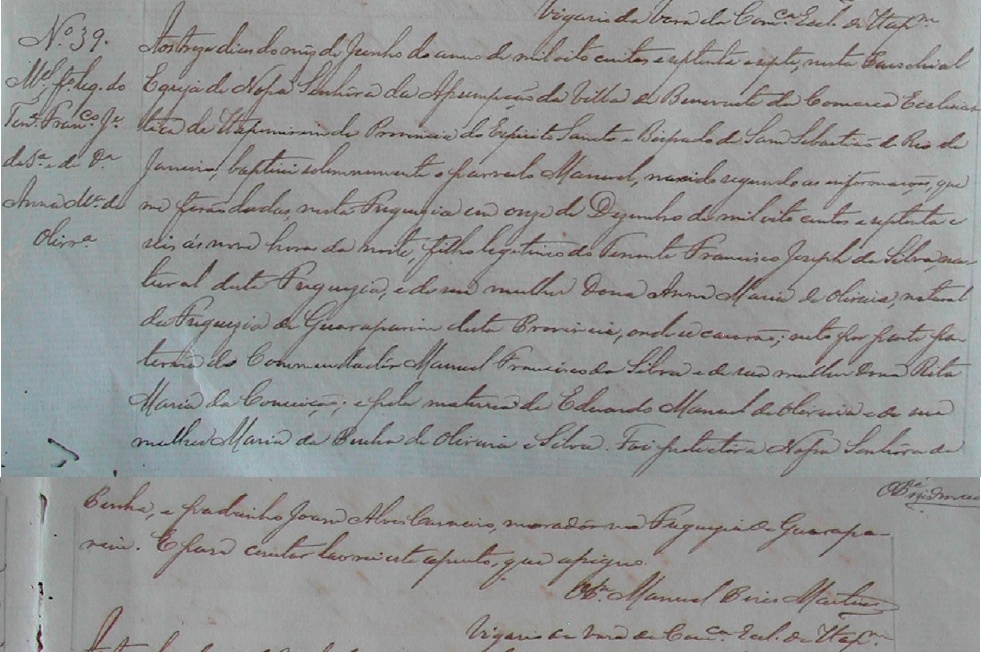 Vigario da Vara da Com.ca Eccl. de Itap.m
N.o 39.
M.el f.o leg. do
Ten.e Fran.co J.e
da S.a e de D.a
Anna M.a de
Olivr.a
Aos treze dias do mes de Junho do anno de mil oito centos e septenta e septe, nesta Parochial
Egreja de Nossa Senhora da Assumpção da Villa de Benevente da Comarca Ecclesias-
tica de Itapemirim da Provincia do Espirito Santo e Bispado de Sam Sebastião do Rio de
Janeiro, baptisei solemnemente o parvulo Manuel, nascido segundo as informações, que
me forão dadas, nesta Freguezia em onze de Dezembro de mil oito centos e septenta e
seis ás nove horas da noite, filho legitimo do Tenente Francisco Joseph da Silva, na-
tural desta Freguezia, e de sua mulher Dona Anna Maria de Oliveira, natural
da Freguezia de Guaraparim desta Provincia, onde se casarão; neto por parte pa-
terna do Commendador Manuel Francisco da Silva e de sua mulher Dona Rita
Maria da Conceição; e pela materna de Eduardo Manuel de Oliveira e de sua
mulher Maria da Penha de Oliveira e Silva. Foi protectora Nossa Senhora da
Penha, e padrinho Joam Alves Carneiro, morador na Freguezia de Guarapa-
rim. E para constar lavrei este assento, que assigno.
O P.e Manuel Pires Martins
Vigario da Vara da Com.ca Eccl. de Itap.m